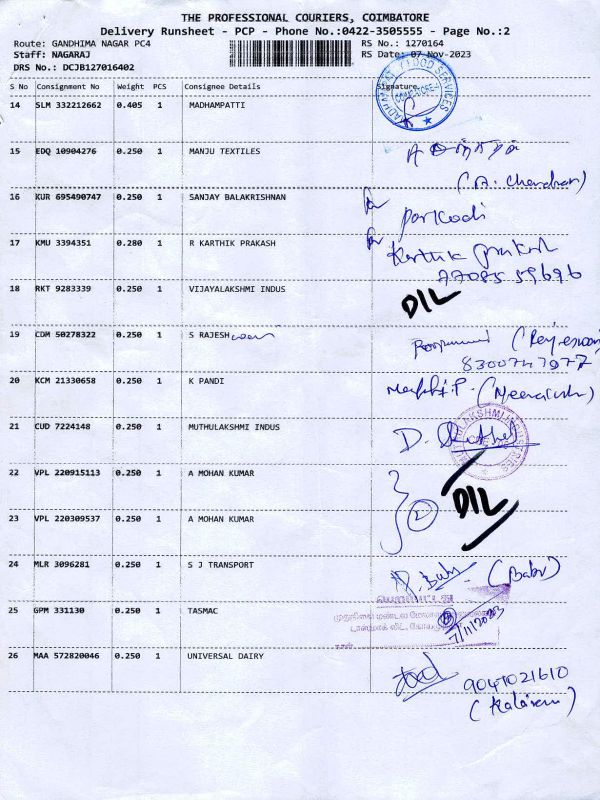 THE PROFESSIONAL COURIERS, COIMBATORE
Delivery Runsheet - PCP - Phone No.:0422-3505555 - Page No.:2
Route: GANDHIMA NAGAR PC4 RS No.: 1270164
Staff: NAGARAJ RS Date: 07-Nov-2023
DRS No.: DCJB127016402
S No Consignment No Weight PCS Consignee Details Signature
14 SLM 332212662 0.405 1 MADHAMPATTI
15 EDQ 10904276 0.250 1 MANJU TEXTILES
(A. Chandran)
16 KUR 695490747 0.250 1 SANJAY BALAKRISHNAN for Porkodi
17 KMU 3394351 0.280 1 R KARTHIK PRAKASH for Karthik Prakash
77085 59696
18 RKT 9283339 0.250 1 VIJAYALAKSHMI INDUS DIL
19 CDM 50278322 0.250 1 S RAJESH
8300747977
20 KCM 21330658 0.250 1 K PANDI
21 CUD 7224148 0.250 1 MUTHULAKSHMI INDUS D.
22 VPL 220915113 0.250 1 A MOHAN KUMAR 2 DIL
23 VPL 220309537 0.250 1 A MOHAN KUMAR
24 MLR 3096281 0.250 1 S J TRANSPORT P. Babu (Babu)
25 GPM 331130 0.250 1 TASMAC
7/11/2023
26 MAA 572820046 0.250 1 UNIVERSAL DAIRY 9041021610